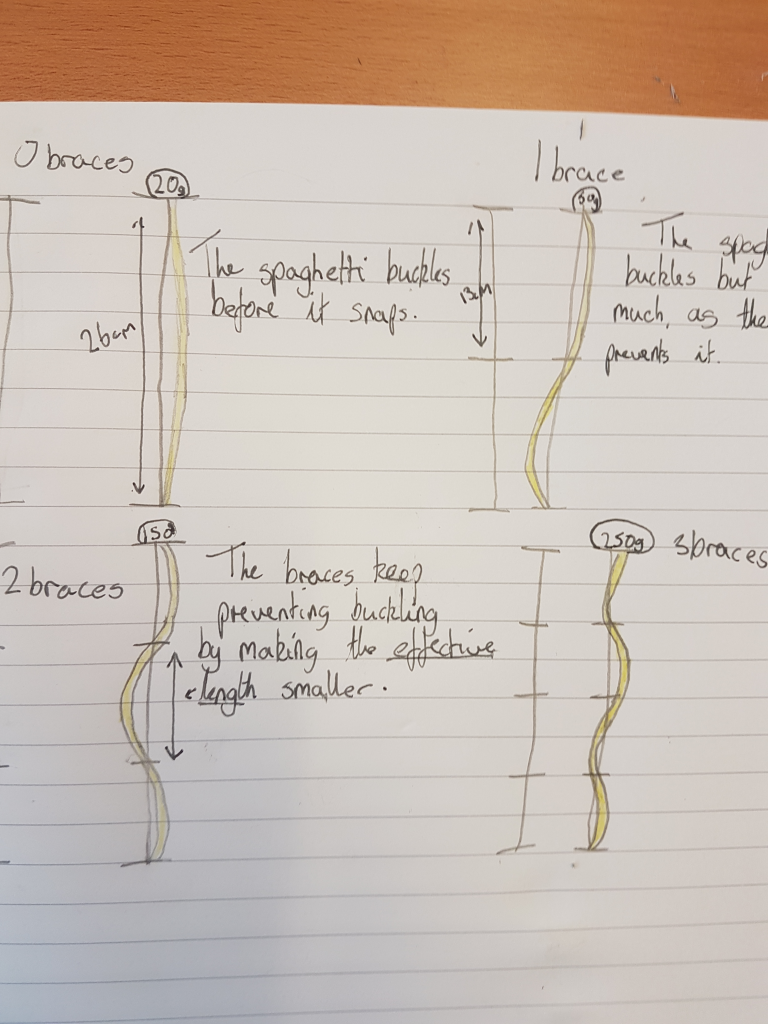 0 braces
20g
26cm
The spaghetti buckles
before it snaps.
1 brace
13cm
The spag
buckles but
much, as the
prevents it.
2 braces
The braces keep
preventing buckling
by making the effective
length smaller.
250g
3braces